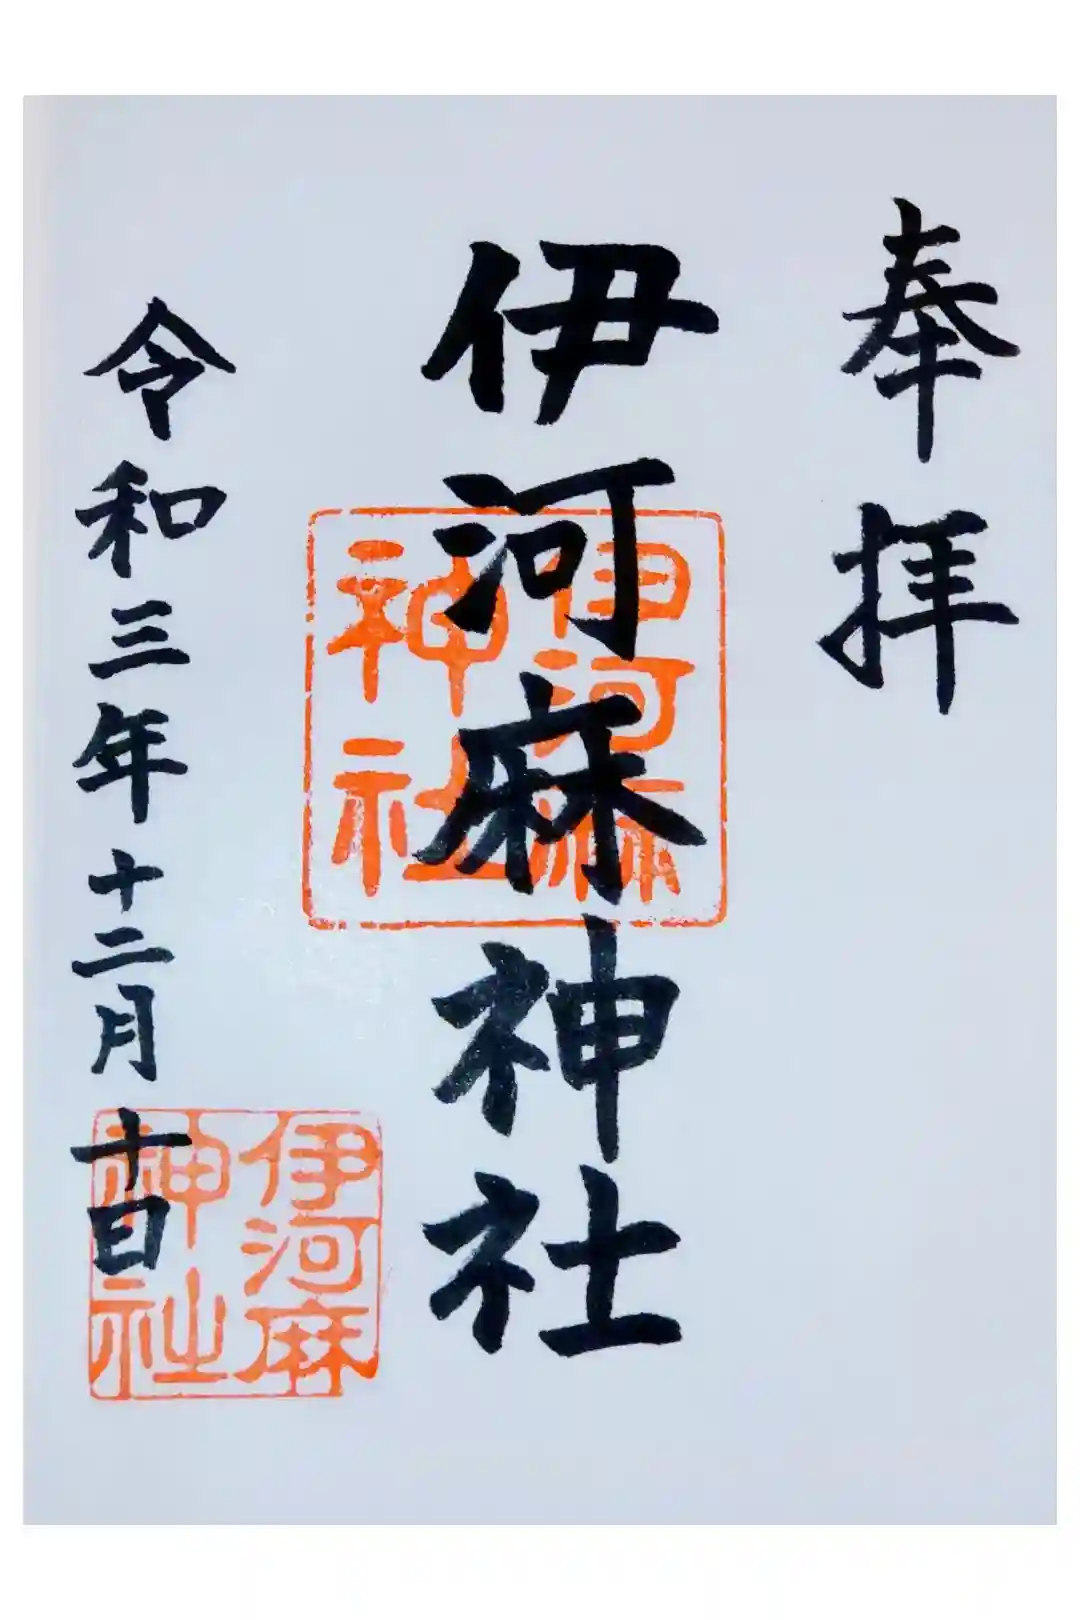 奉拝
伊河麻神社
伊河麻
神社
令和三年十二月十日
伊河麻
神社